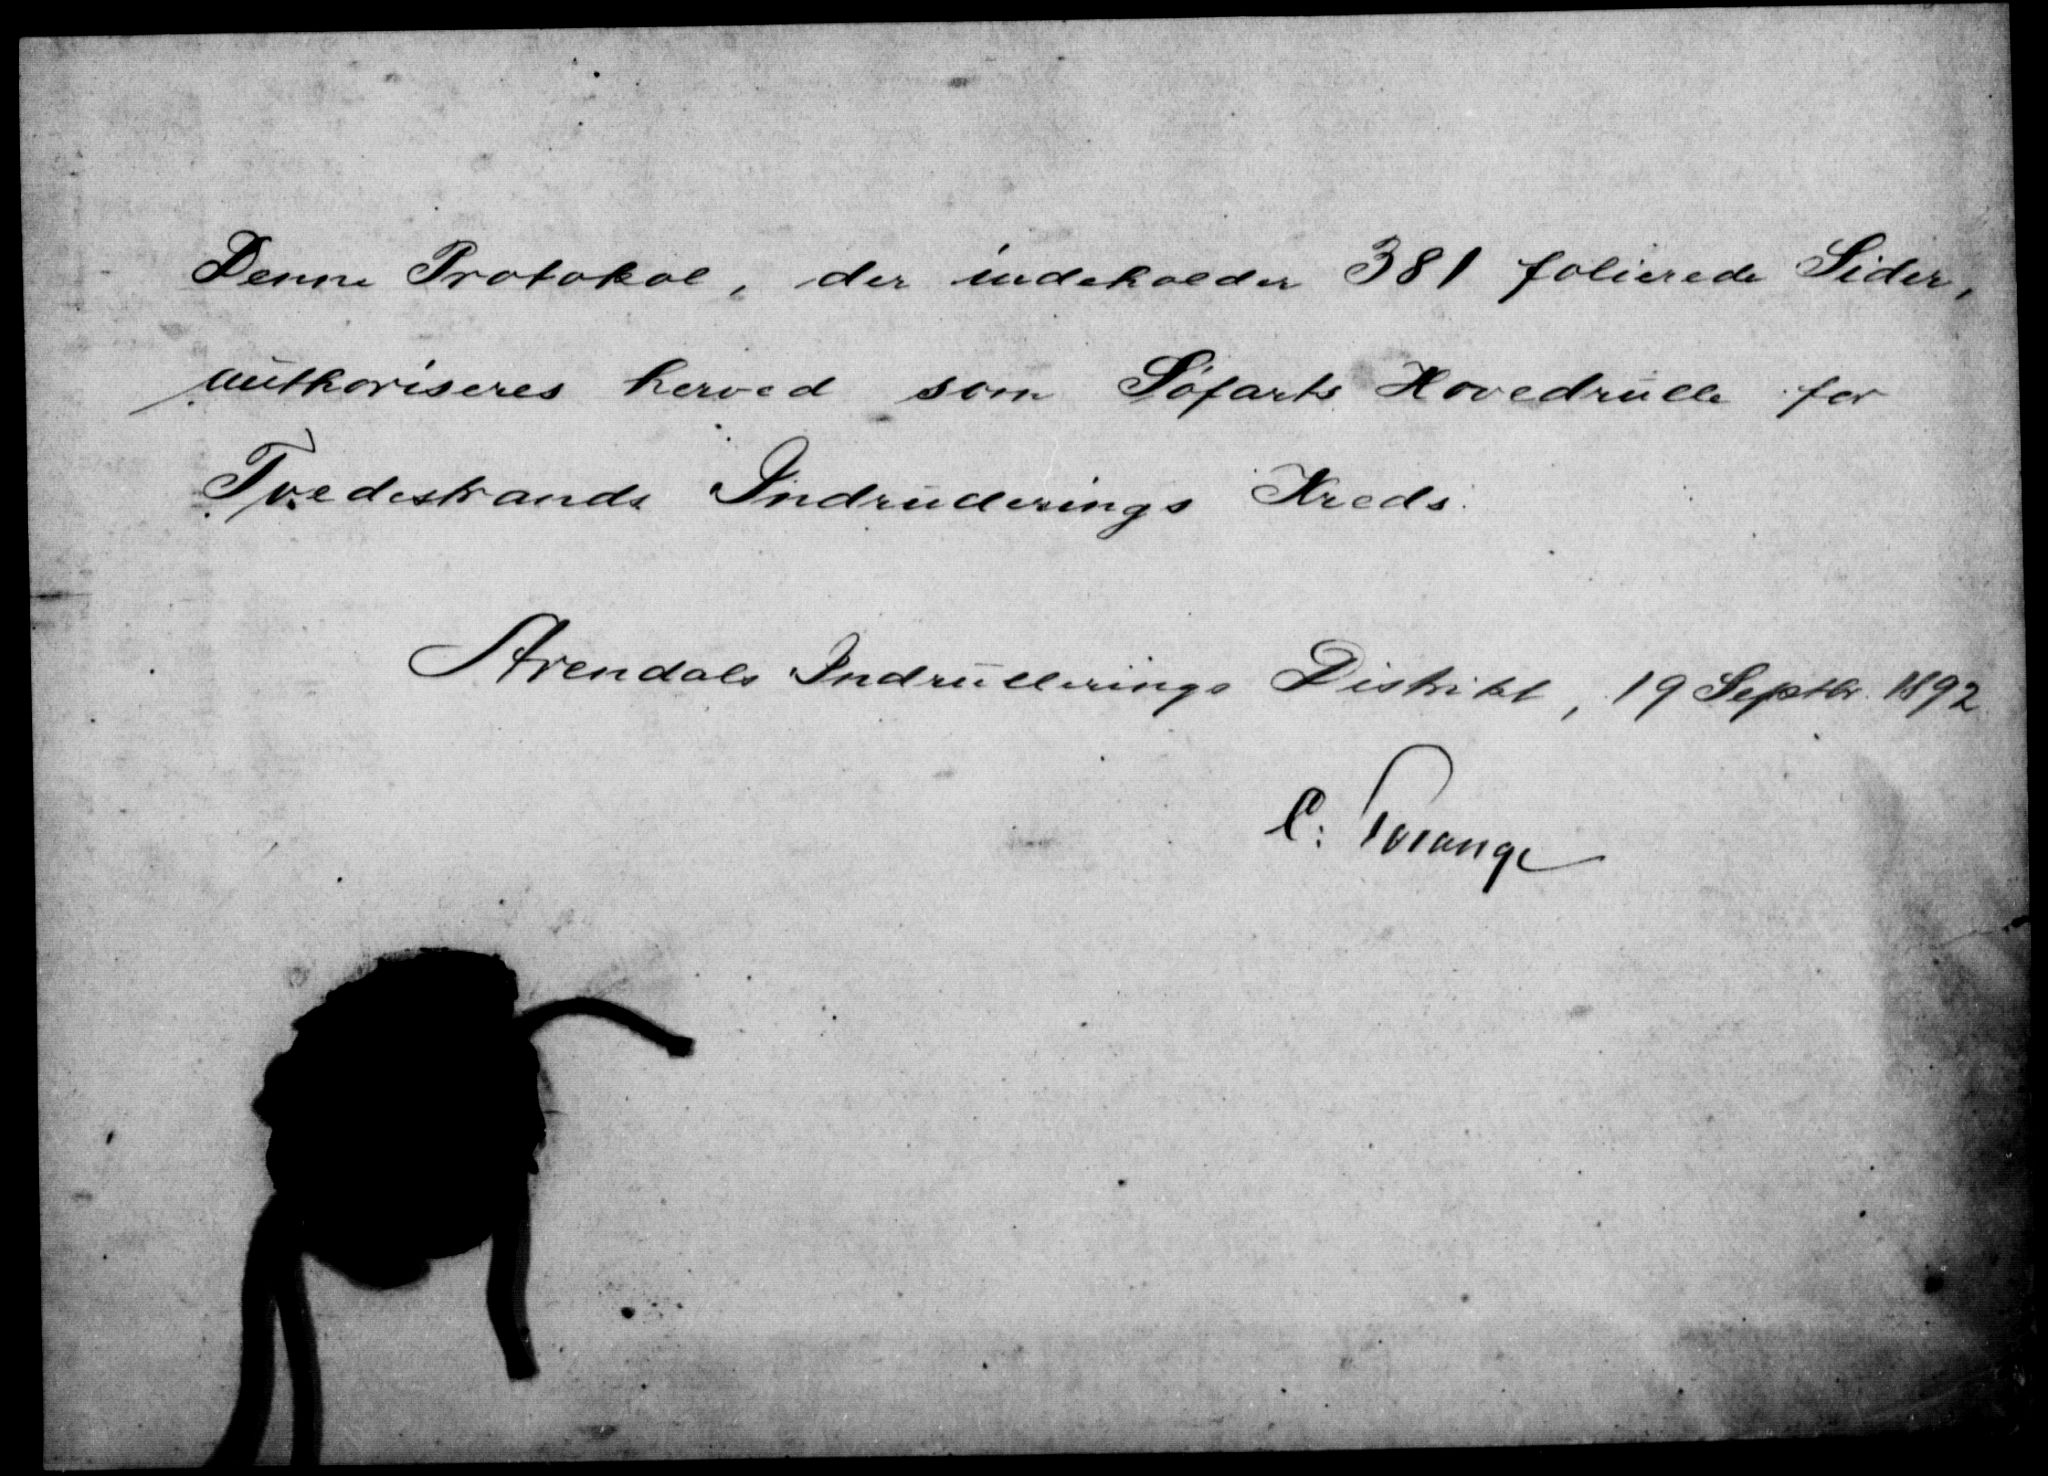 Denne Protokol, der indeholder 381 folierede Sider,
authoriseres herved som Söfarts Hovedrulle for
Tvedestrands Indrullerings Kreds.
Arendals Indrullerings Distrikt, 19 Septbr. 1892
C.